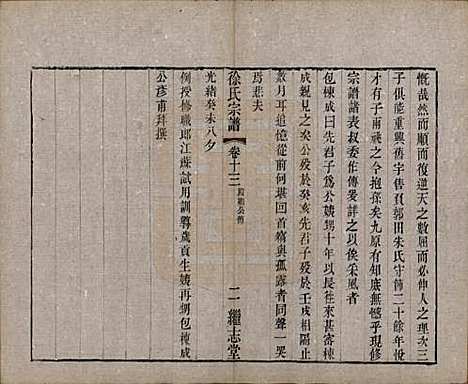 慨哉然而順復逆天之數屈而必伸人之理次三
子俱能重興舊宇售貝郭田朱氏守節二十餘年歿
才有子兩飛之今抱孫矣九原有知應無憾乎又廷
宗譜諸表叔委作傳爰詳之以俟采風者
包棟成曰先君子爲公姨甥十年以長往來甚密棟
成親見之矣公歿於癸亥先君子歿於壬戌相隔止
數月耳追憶從前何堪回首竊與孤露者同聲一哭
焉悲夫
光緒癸未八夕
例授修職郎江蘇試用訓導歲貢生姨再甥包棟成
公彥甫拜撰
徐氏宗譜
卷十三
二
繼志堂